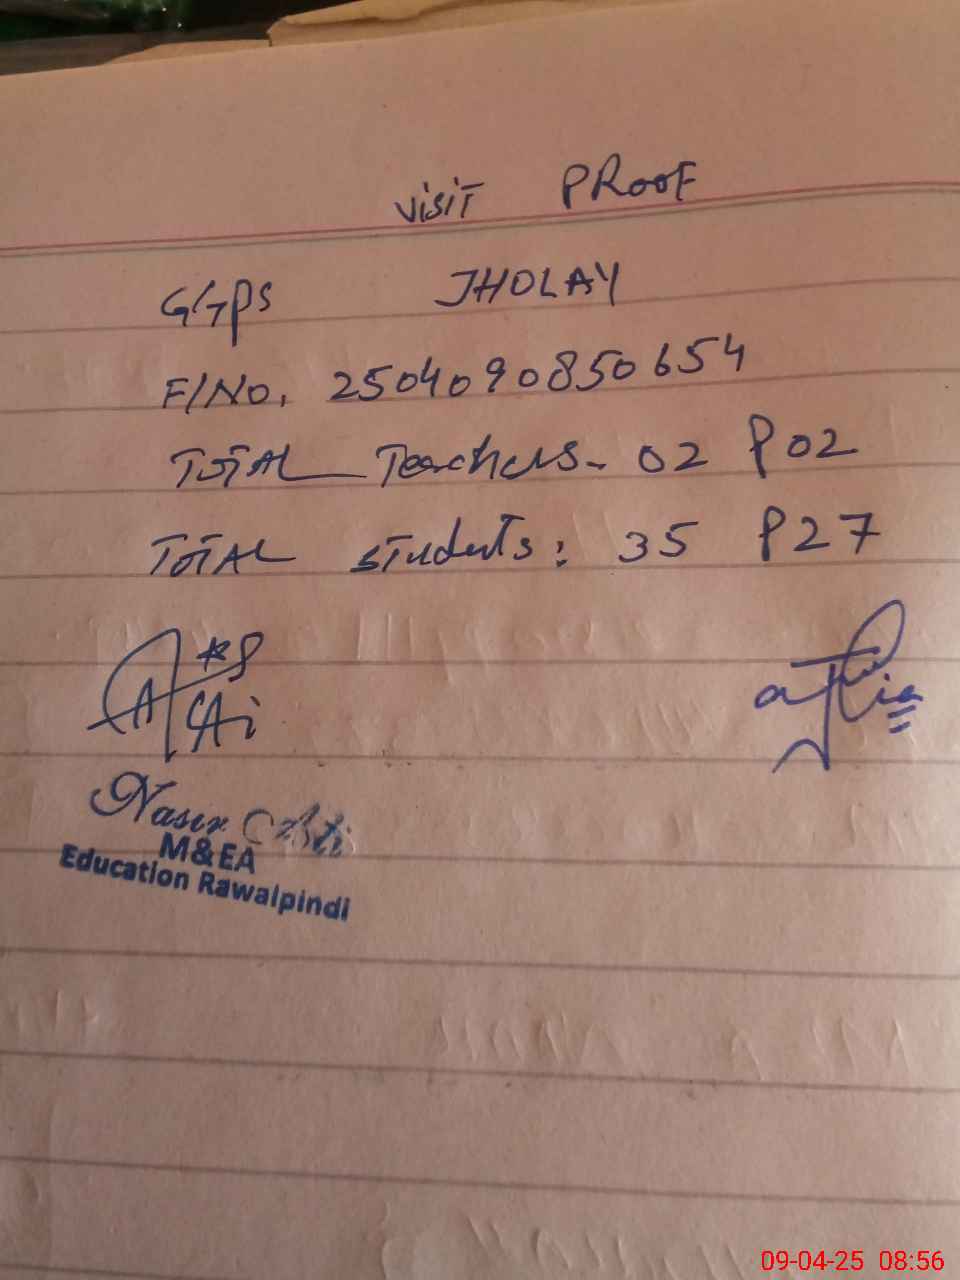 visit PRooF
GGPS JHOLAY
F/No. 2504090850654
TOTAL Teachers - 02 P 02
TOTAL students : 35 P 27
Nasir Ali
M&EA
Education Rawalpindi
09-04-25 08:56